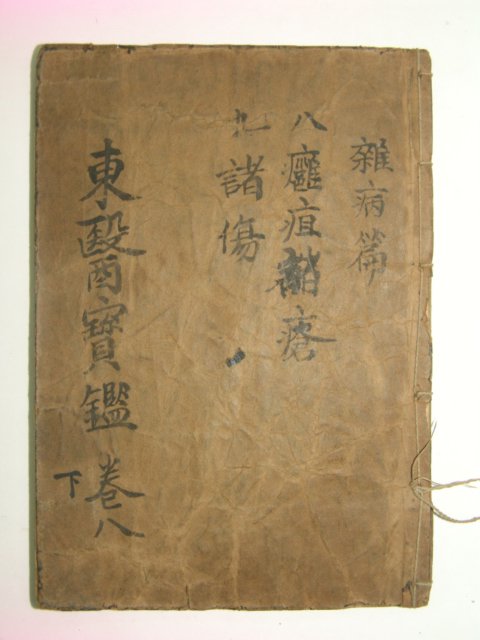 雜病篇
八 癰疽 瘡
九 諸傷
東醫寶鑑 卷八
下